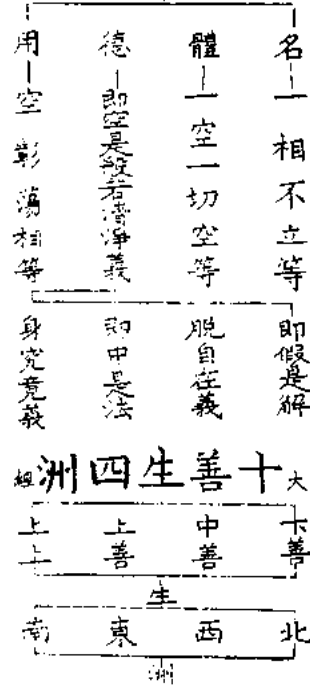 名—一相不立等
體—一空一切空等
德—即空是般若清淨義
用—空彰蕩相等
即假是解
脫自在義
即中是法
身究竟義
大十善生四洲組
下善
中善
上善
上上
生
北
西
東
南
洲